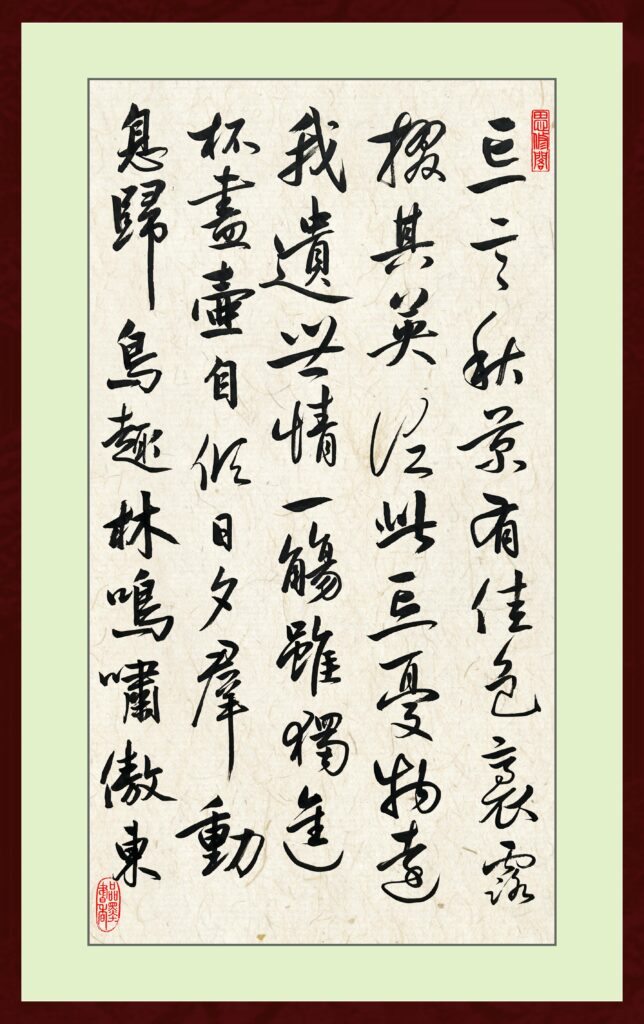 思修閣
亡言秋景有佳色裛露
掇其英泛此亡憂物達
我遺世情一觴雖獨進
杯盡壺自傾日夕羣動
息歸鳥趣林鳴嘯傲東